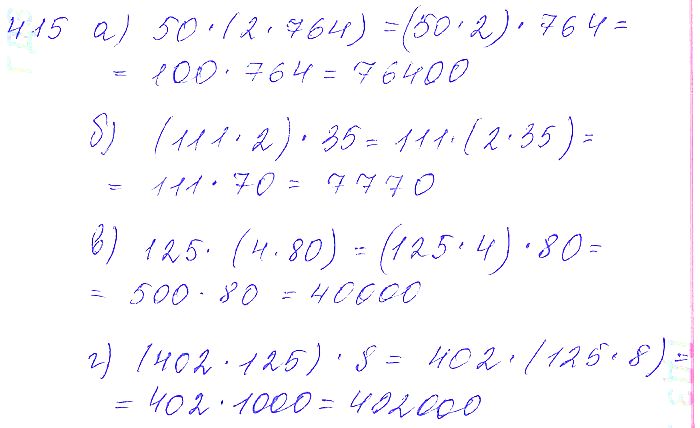 415 а) 50·(2·764) = (50·2)·764 =
= 100·764 = 76400
б) (111·2)·35 = 111·(2·35) =
= 111·70 = 7770
в) 125·(4·80) = (125·4)·80 =
= 500·80 = 40000
г) (402·125)·8 = 402·(125·8) =
= 402·1000 = 402000